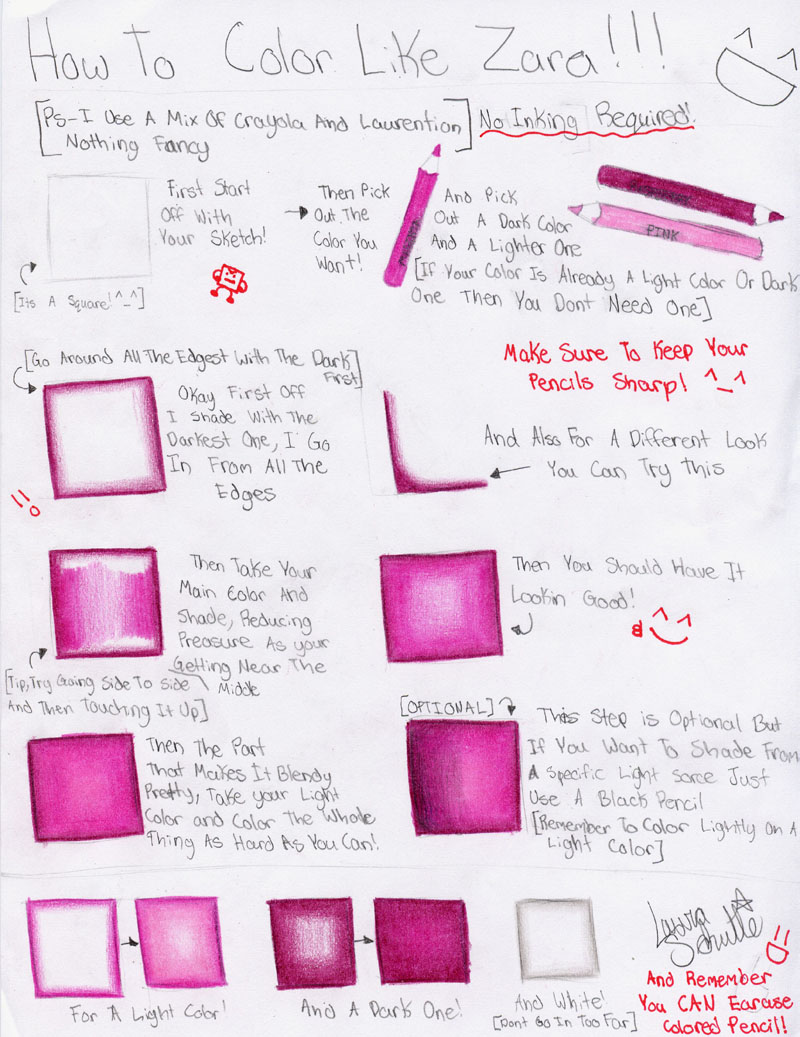 How To Color Like Zara!!!
[Ps-I Use A Mix Of Crayola And Laurention
Nothing Fancy]
No Inking Required!
First Start
Off With
Your Sketch!
[Its A Square! ^_^]
Then Pick
Out The
Color You
Want!
And Pick
Out A Dark Color
And A Lighter One
[If Your Color Is Already A Light Color Or Dark
One Then You Dont Need One]
PINK
Make Sure To Keep Your
Pencils Sharp! ^_^
[Go Around All The Edgest With The Dark
First]
Okay First Off
I Shade With The
Darkest One, I Go
In From All The
Edges
And Also For A Different Look
You Can Try This
Then Take Your
Main Color And
Shade, Reducing
Preasure As your
Getting Near The
Middle
[Tip, Try Going Side To Side
And Then Touching It Up]
Then You Should Have It
Lookin Good!
Then The Part
That Makes It Blendy
Pretty, Take your Light
Color and Color The Whole
Thing As Hard As You Can!
[OPTIONAL]
This Step is Optional But
If You Want To Shade From
A Specific Light Sorce Just
Use A Black Pencil
[Remember To Color Lightly On A
Light Color]
For A Light Color!
And A Dark One!
And White!
[Dont Go In Too Far]
Laura
Schulte
And Remember
You CAN Earase
Colored Pencil!